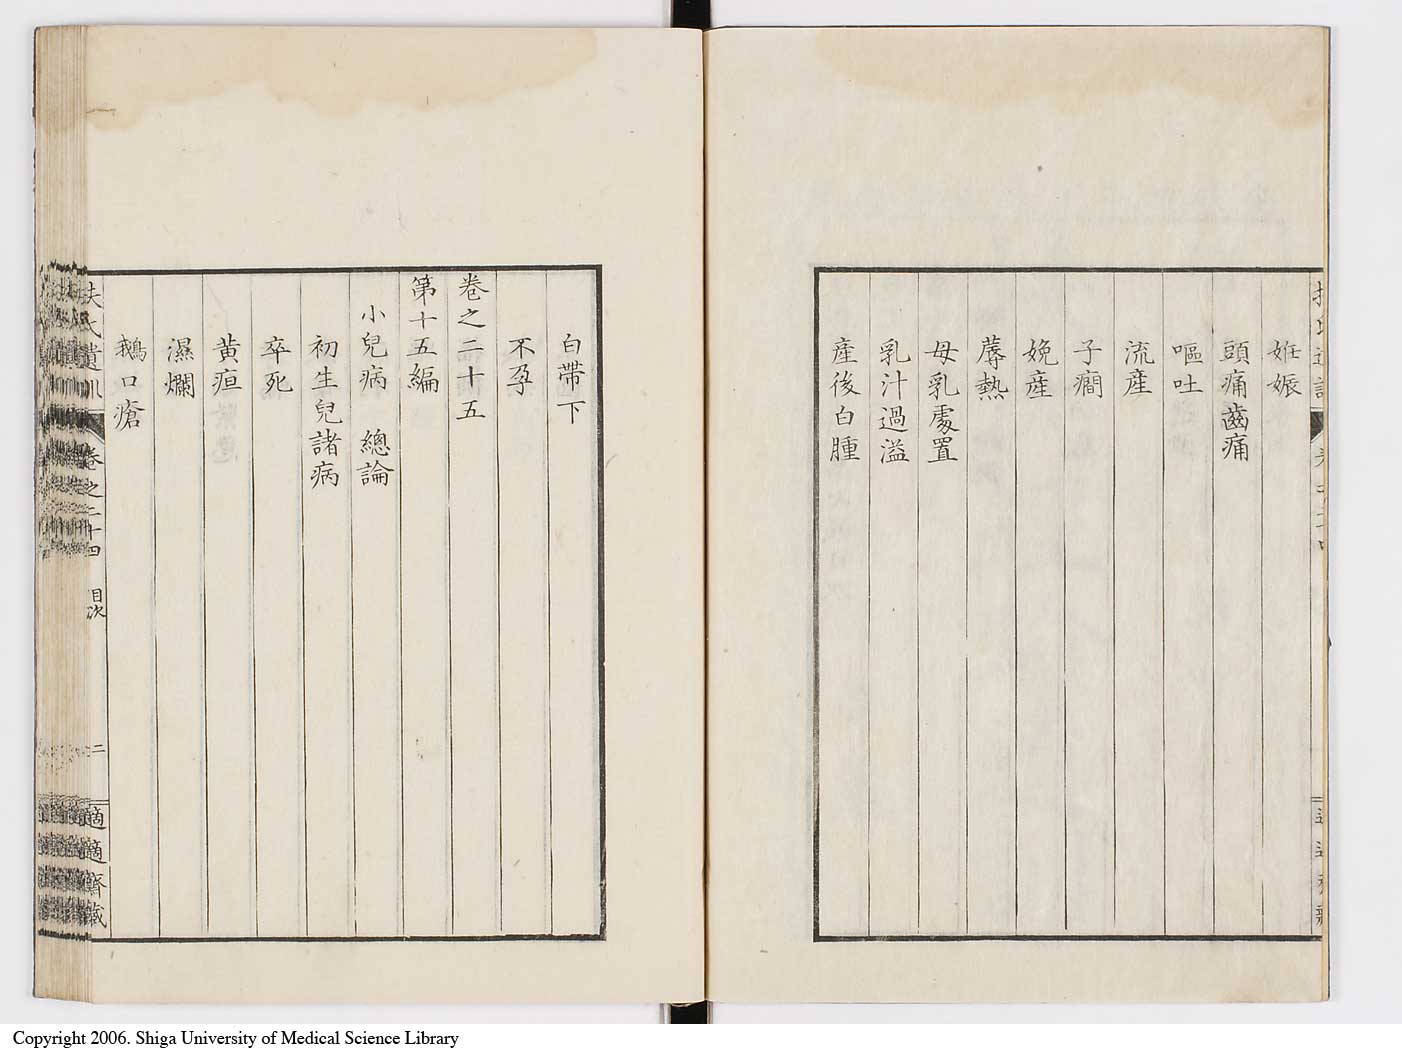 妊娠
頭痛齒痛
嘔吐
流産
子癎
娩産
蓐熱
母乳處置
乳汁過溢
産後白腫
白帶下
不孕
卷之二十五
第十五編
小兒病 總論
初生兒諸病
卒死
黄疸
濕爛
鵝口瘡
扶氏遺訓 卷之二十四 目次 二 適適齋藏
Copyright 2006. Shiga University of Medical Science Library